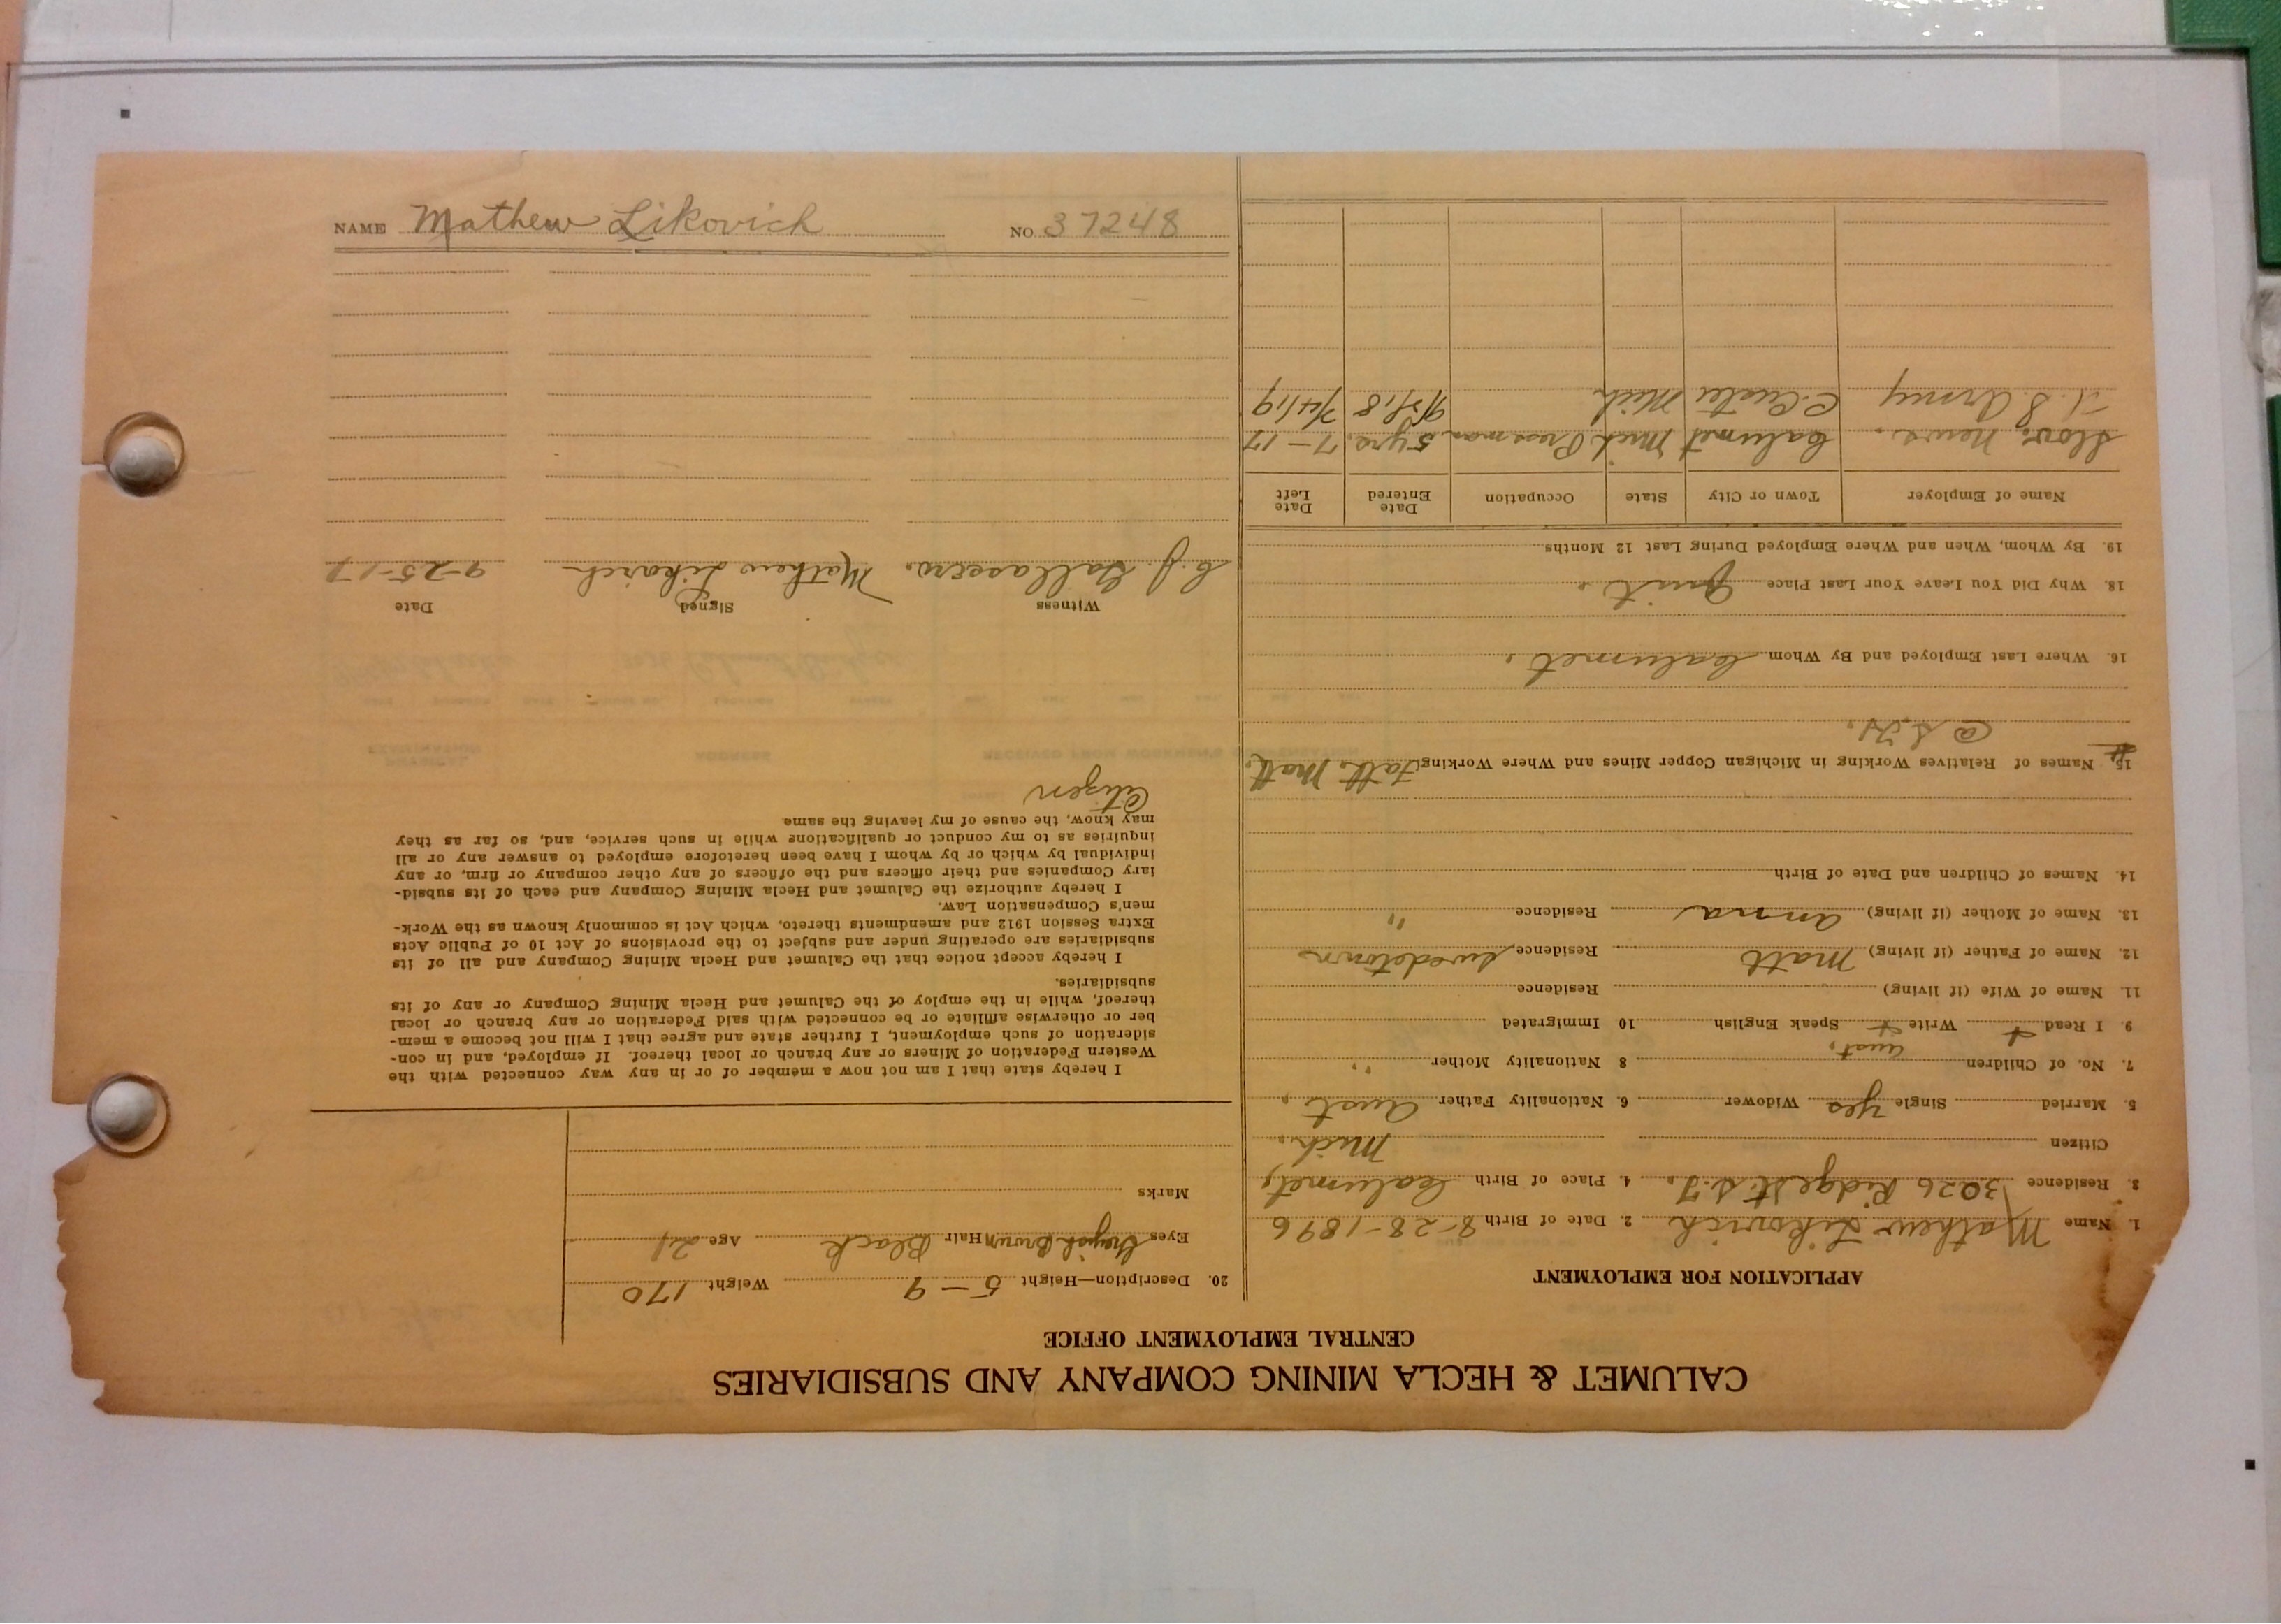 CALUMET & HECLA MINING COMPANY AND SUBSIDIARIES
CENTRAL EMPLOYMENT OFFICE
APPLICATION FOR EMPLOYMENT
1. Name Mathew Likovich 2. Date of Birth 8-28-1896
3. Residence 3026 Ridge St. S.T. 4. Place of Birth Calumet,
Citizen Mich.
5. Married Single yes Widower 6. Nationality Father Aust.
7. No. of Children 8 Nationality Mother "
Aust.
9. I Read Write Speak English 10 Immigrated
11. Name of Wife (if living) Residence
12. Name of Father (if living) Matt Residence Swedetown
13. Name of Mother (if living) Anna Residence "
14. Names of Children and Date of Birth
15. Names of Relatives Working in Michigan Copper Mines and Where Working Fath. Matt.
16. Where Last Employed and By Whom Calumet.
18. Why Did You Leave Your Last Place Quit.
19. By Whom, When and Where Employed During Last 12 Months
Name of Employer Town or City State Occupation Date Entered Date Left
Slov. News. Calumet Mich Pressman 5 yrs. 7-17
U.S. Army C. Custer Mich
20. Description—Height 5-9 Weight 170
Eyes Greyish Brown Hair Black Age 21
Marks
I hereby state that I am not now a member of or in any way connected with the
Western Federation of Miners or any branch or local thereof. If employed, and in con-
sideration of such employment, I further state and agree that I will not become a mem-
ber or otherwise affiliate or be connected with said Federation or any branch or local
thereof, while in the employ of the Calumet and Hecla Mining Company or any of its
subsidiaries.
I hereby accept notice that the Calumet and Hecla Mining Company and all of its
subsidiaries are operating under and subject to the provisions of Act 10 of Public Acts
Extra Session 1912 and amendments thereto, which Act is commonly known as the Work-
men's Compensation Law.
I hereby authorize the Calumet and Hecla Mining Company and each of its subsid-
iary Companies and their officers and the officers of any other company or firm, or any
individual by which or by whom I have been heretofore employed to answer any or all
inquiries as to my conduct or qualifications while in such service, and, so far as they
may know, the cause of my leaving the same
Citizen
Witness Signed Date
C. J. Gallassero. Mathew Likovich 9-25-17
NAME Mathew Likovich NO. 37248